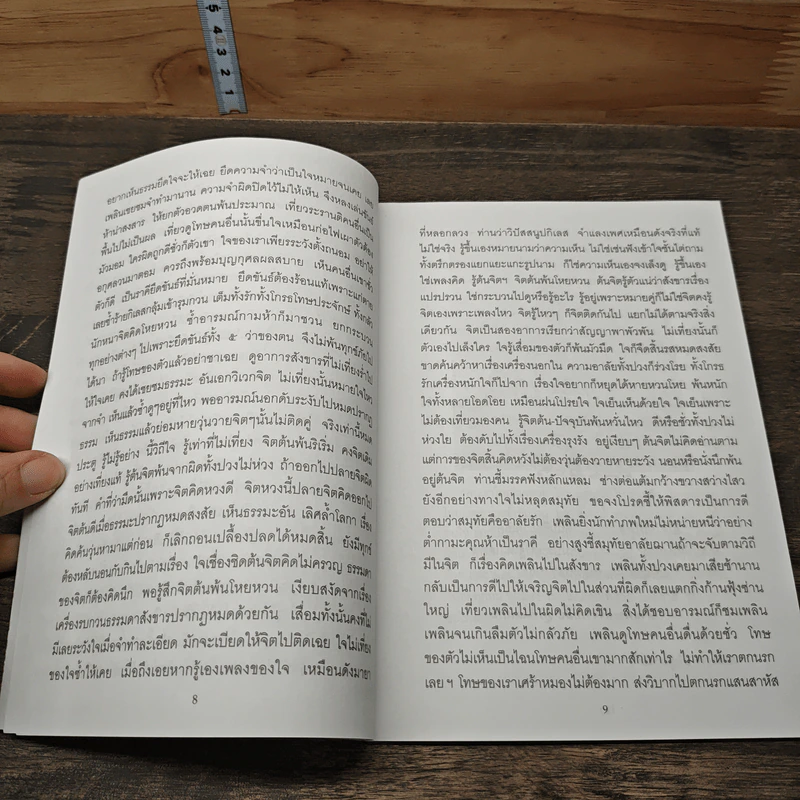 5
4
3
2
1
อยากเห็นธรรมยึดใจจะให้เฉย ยึดความจำว่าเป็นใจหมายจนเคย เลย
เพลินเชยชมจำทำมานาน ความจำผิดปิดไว้ไม่ให้เห็น จึงหลงเล่นขันธ์
ห้าน่าสงสาร ให้ยกตัวอวดตนพ้นประมาณ เที่ยวระรานติคนอื่นเป็น
พื้นไปไม่เป็นผล เที่ยวดูโทษคนอื่นนั้นขื่นใจเหมือนก่อไฟเผาตัวต้อง
มัวมอม ใครผิดถูกดีชั่วก็ตัวเขา ใจของเราเพียรระวังตั้งถนอม อย่าให้
อกุศลวนมาตอม ควรถึงพร้อมบุญกุศลผลสบาย เห็นคนอื่นเขาชั่ว
ตัวก็ดี เป็นราคียึดขันธ์ที่มั่นหมาย ยึดขันธ์ต้องร้อนแท้เพราะแก่ตาย
เลยซ้ำร้ายกิเลสกลุ้มเข้ารุมกวน เต็มทั้งรักทั้งโกรธโทษประจักษ์ ทั้งกลัว
นักหนาจิตคิดโหยหวน ซ้ำอารมณ์กามห้าก็มาชวน ยกกระบวน
ทุกอย่างต่างๆ ไปเพราะยึดขันธ์ทั้ง ๕ ว่าของตน จึงไม่พ้นทุกข์ภัยไป
ได้นา ถ้ารู้โทษของตัวแล้วอย่าชาเฉย ดูอาการสังขารที่ไม่เที่ยงร่ำไป
ให้ใจเคย คงได้เชยชมธรรมะ อันเอกวิเวกจิต ไม่เที่ยงนั้นหมายใจไหว
จากจำ เห็นแล้วซ้ำดูๆอยู่ที่ไหว พออารมณ์นอกดับระงับไปหมดปรากฏ
ธรรม เห็นธรรมแล้วย่อมหายวุ่นวายจิตๆนั้นไม่ติดคู่ จริงเท่านี้หมด
ประตู รู้ไม่รู้อย่าง นี้วิถีใจ รู้เท่าที่ไม่เที่ยง จิตต้นพ้นริเริ่ม คงจิตเดิม
อย่างเที่ยงแท้ รู้ต้นจิตพ้นจากผิดทั้งปวงไม่ห่วง ถ้าออกไปปลายจิตผิด
ทันที คำที่ว่ามืดนั้นเพราะจิตคิดหวงดี จิตหวงนี้ปลายจิตคิดออกไป
จิตต้นดีเมื่อธรรมะปรากฏหมดสงสัย เห็นธรรมะอัน เลิศล้ำโลกา เรื่อง
คิดค้นวุ่นหามาแต่ก่อน ก็เลิกถอนเปลื้องปลดได้หมดสิ้น ยังมีทุกข์
ต้องหลับนอนกับกินไปตามเรื่อง ใจเชื่องชิดต้นจิตคิดไม่ครวญ ธรรมดา
ของจิตก็ต้องคิดนึก พอรู้สึกจิตต้นพ้นโหยหวน เงียบสงัดจากเรื่อง
เครื่องรบกวนธรรมดาสังขารปรากฏหมดด้วยกัน เสื่อมทั้งนั้นคงที่ไม่
มีเลยระวังใจเมื่อจำทำละเอียด มักจะเบียดให้จิตไปติดเฉย ใจไม่เที่ยง
ของใจซ้ำให้เคย เมื่อถึงเอยหากรู้เองเพลงของใจ เหมือนดังมายา
8
ที่หลอกลวง ท่านว่าวิปัสสนูปกิเลส จำแลงเพศเหมือนดังจริงที่แท้
ไม่ใช่จริง รู้ขึ้นเองหมายนามว่าความเห็น ไม่ใช่เช่นฟังเข้าใจชั้นไต่ถาม
ทั้งตรึกตรองแยกแยะแกะรูปนาม ก็ใช่ความเห็นเองจงเล็งดู รู้ขึ้นเอง
ใช่เพลงคิด รู้ต้นจิตฯ จิตต้นพ้นโหยหวน ต้นจิตรู้ตัวแน่ว่าสังขารเรื่อง
แปรปรวน ใช่กระบวนไปดูหรือรู้อะไร รู้อยู่เพราะหมายคู่ก็ไม่ใช่จิตคงรู้
จิตเองเพราะเพลงไหว จิตรู้ไหวๆ ก็จิตติดกันไป แยกไม่ได้ตามจริงสิ่ง
เดียวกัน จิตเป็นสองอาการเรียกว่าสัญญาพาพัวพัน ไม่เที่ยงนั้นก็
ตัวเองไปเล็งใคร รู้เสื่อมของตัวก็พ้นมัวมืด ใจก็จืดสิ้นรสหมดสงสัย
ขาดค้นคว้าหาเรื่องเครื่องนอกใน ความอาลัยทั้งปวงก็ร่วงโรย ทั้งโกรธ
รักเครื่องหนักใจก็ไปจาก เรื่องใจอยากก็หยุดได้หายหวนโหย พ้นหนัก
ใจทั้งหลายโอดโอย เหมือนฝนโปรยใจ ใจเย็นเห็นด้วยใจ ใจเย็นเพราะ
ไม่ต้องเที่ยวมองคน รู้จิตต้น-ปัจจุบันพ้นหวั่นไหว ดีหรือชั่วทั้งปวงไม่
ห่วงใย ต้องดับไปทั้งเรื่องเครื่องรุงรัง อยู่เงียบๆ ต้นจิตไม่คิดอ่านตาม
แต่การของจิตสิ้นคิดหวังไม่ต้องวุ่นต้องวายหายระวัง นอนหรือนั่งนึกพ้น
อยู่ต้นจิต ท่านชี้มรรคฟังหลักแหลม ช่างต่อแต้มกว้างขวางสว่างไสว
ยังอีกอย่างทางใจไม่หลุดสมุทัย ขอจงโปรดชี้ให้พิสดารเป็นการดี
ตอบว่าสมุทัยคืออาลัยรัก เพลินยิ่งนักทำภพใหม่ไม่หน่ายหนีว่าอย่าง
ต่ำกามะคุณห้าเป็นราคี อย่างสูงชี้สมุทัยอาลัยฌานถ้าจะจับตามวิถี
มีในจิต ก็เรื่องคิดเพลินไปในสังขาร เพลินทั้งปวงเคยมาเสียช้านาน
กลับเป็นการดีไปให้เจริญจิตไปในส่วนที่ผิดก็เลยแตกกิ่งก้านฟุ้งซ่าน
ใหญ่ เที่ยวเพลินไปในผิดไม่คิดเขิน สิ่งใดชอบอารมณ์ก็ชมเพลิน
เพลินจนเกินลืมตัวไม่กลัวภัย เพลินดูโทษคนอื่นดื่นด้วยชั่ว โทษ
ของตัวไม่เห็นเป็นไฉนโทษคนอื่นเขามากสักเท่าไร ไม่ทำให้เราตกนรก
เลย ฯ โทษของเราเศร้าหมองไม่ต้องมาก ส่งวิบากไปตกนรกแสนสาหัส
9